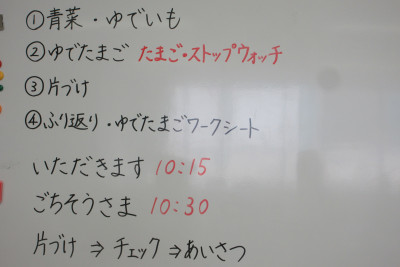 ①青菜・ゆでいも
②ゆでたまご たまご・ストップウォッチ
③片づけ
④ふり返り・ゆでたまごワークシート
いただきます 10:15
ごちそうさま 10:30
片づけ ⇒ チェック ⇒ あいさつ